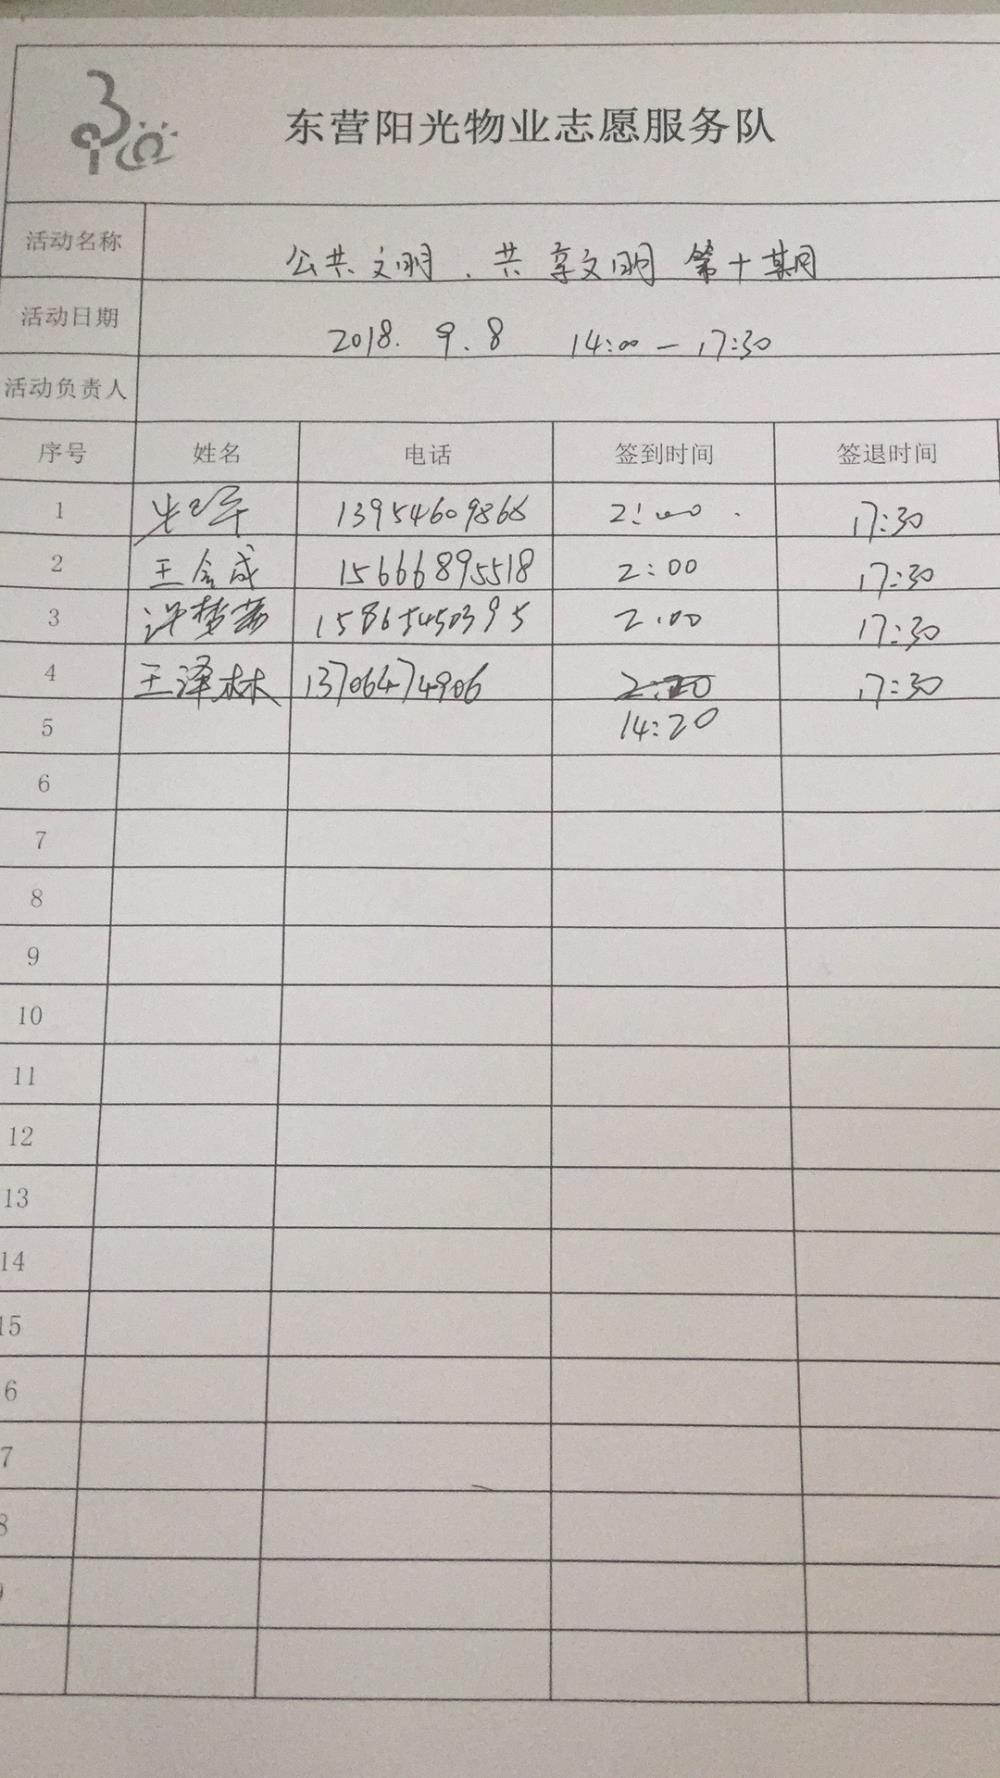 东营阳光物业志愿服务队
活动名称 公共文明、共享文明 第十期
活动日期 2018. 9. 8 14:00 — 17:30
活动负责人
序号 姓名 电话 签到时间 签退时间
1 13954609866 2:00 17:30
2 王会成 15666895518 2:00 17:30
3 许梦茜 15865450395 2:00 17:30
4 王泽林 13706474906 2:20 17:30
5 14:20
6
7
8
9
10
11
12
13
14
15
6
7
8